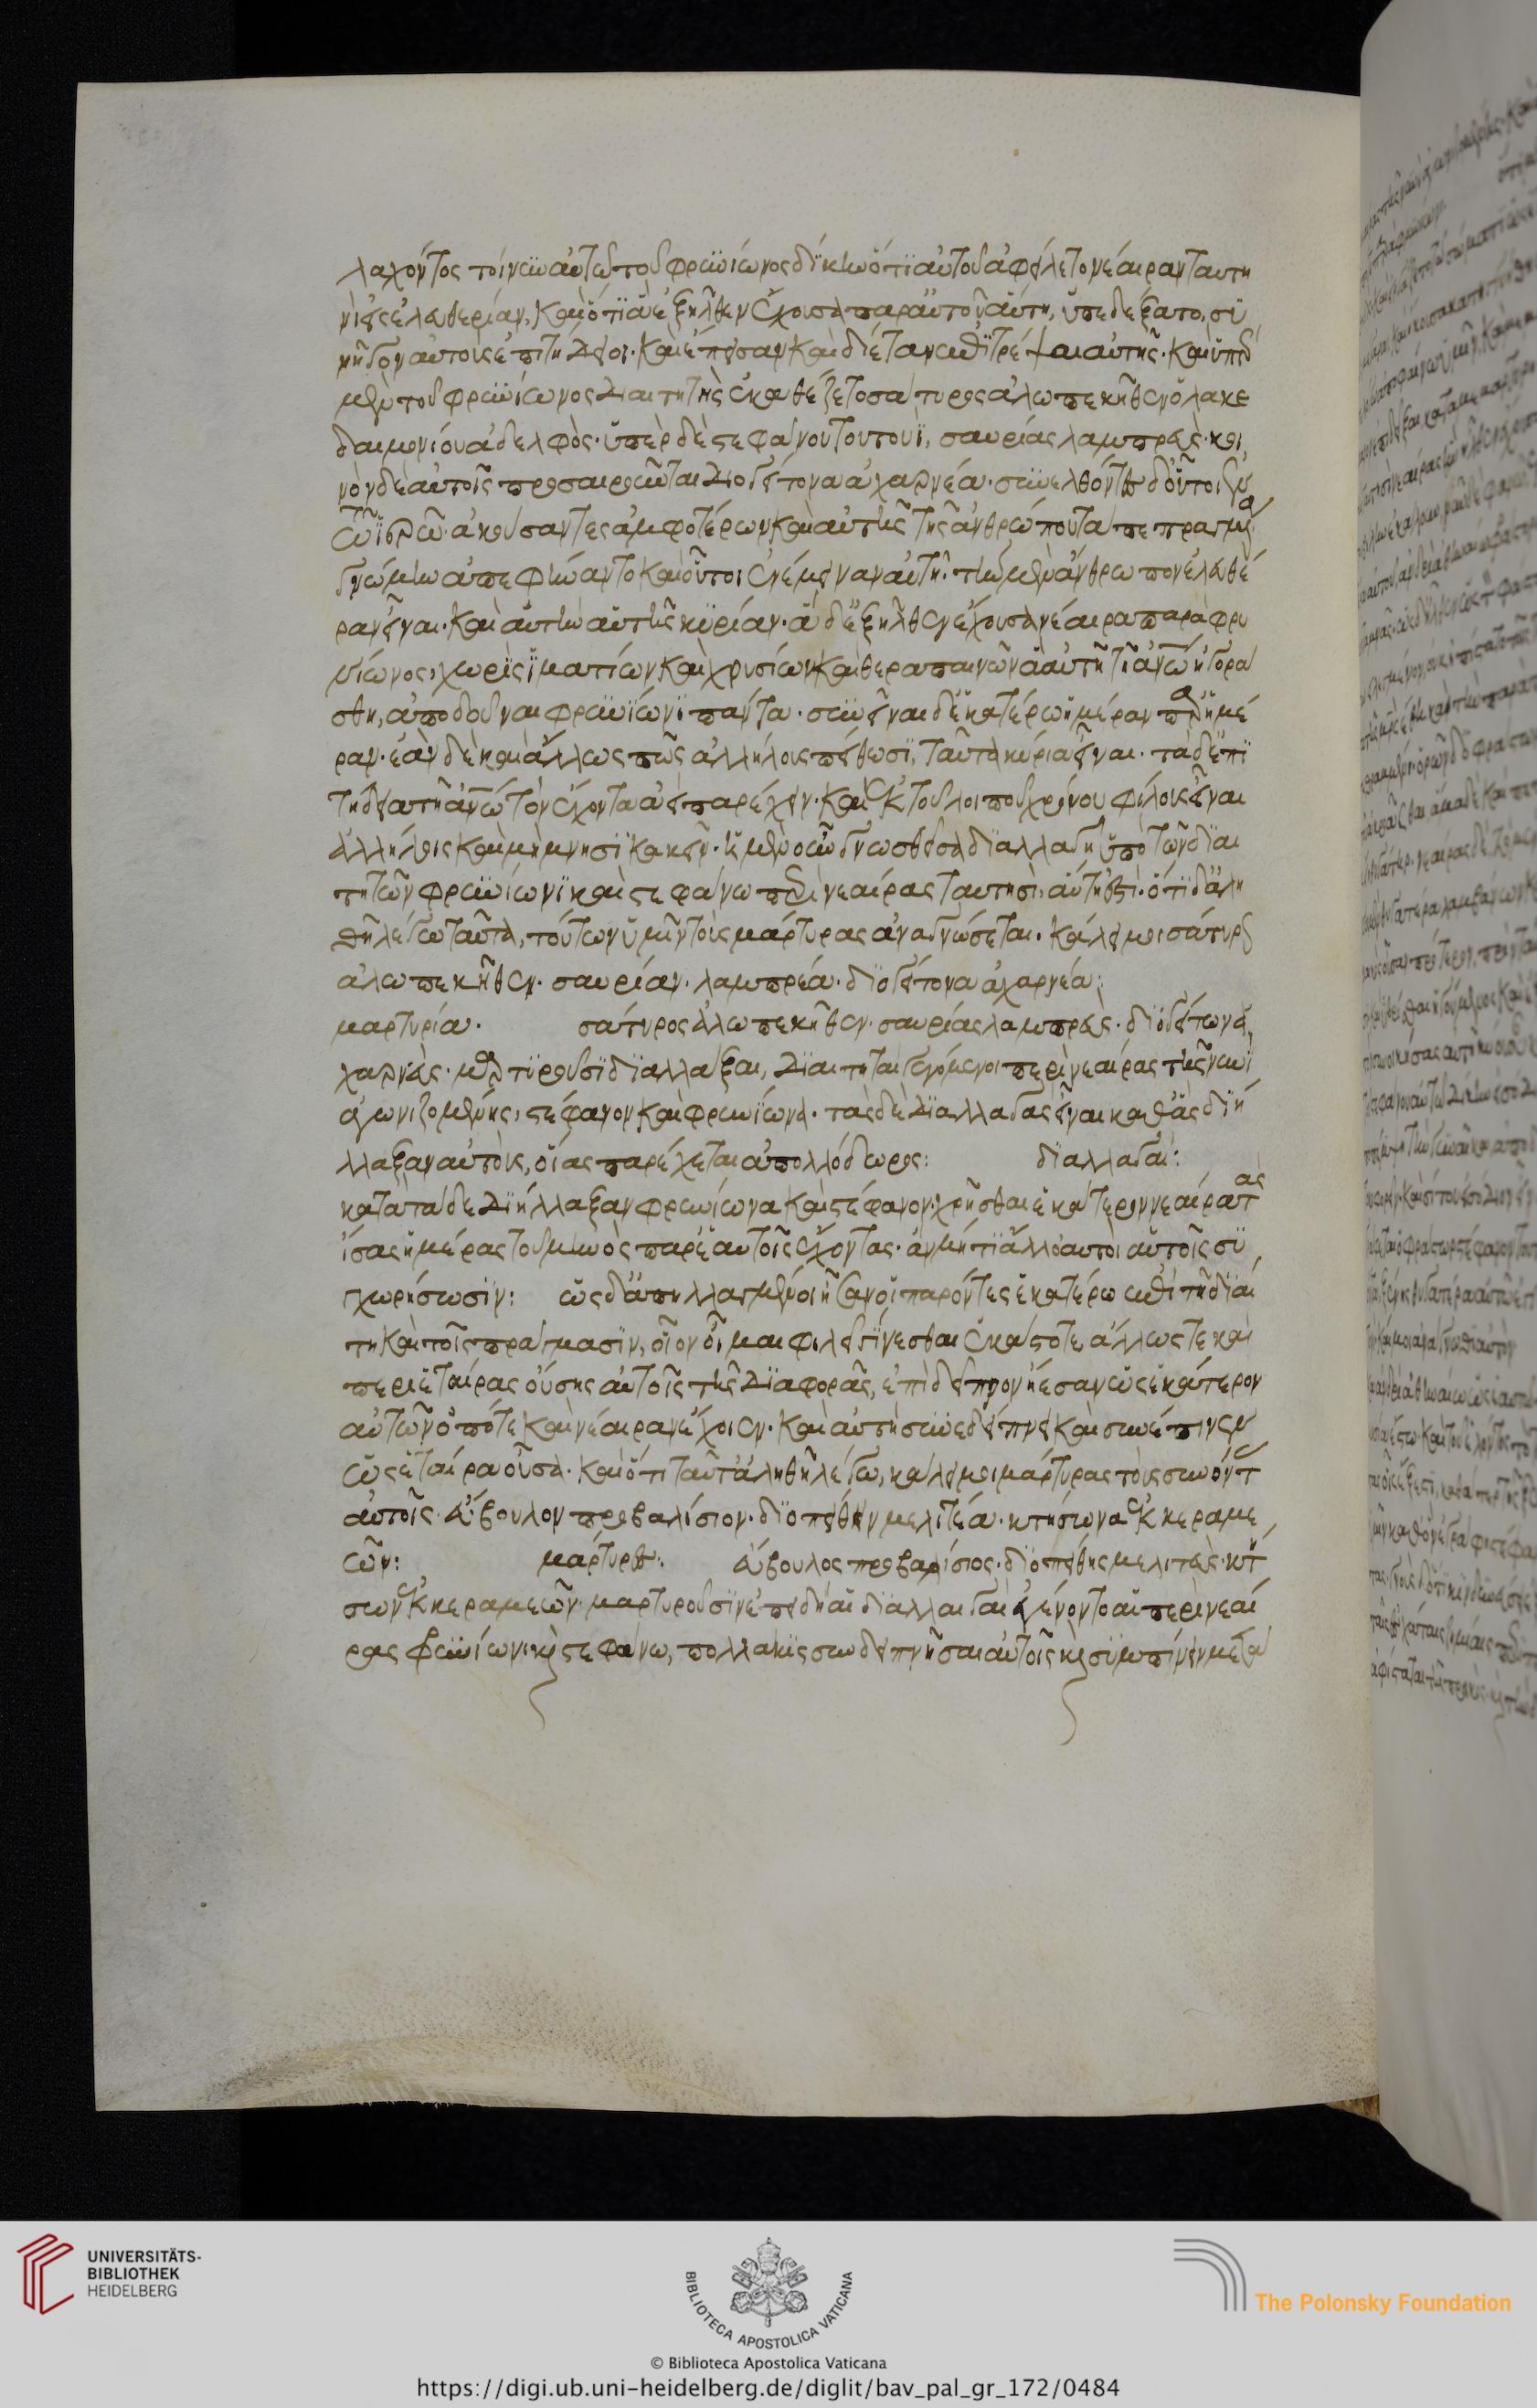 λαχόντος τοίνυν αὐτῶ τοῦ φρυνίωνος δίκην ὅτι αὐτοῦ ἀφείλετο νέαιραν ταυτη
νὶ εἰς ἐλευθερίαν, καὶ ὅτι ἃ ἐξῆλθεν ἔχουσα παρ' αὐτοῦ αὕτη, ὑπεδέξατο, συ
νῆγον αὐτοὺς ἐπιτήδειοι· καὶ ἔπεισαν καὶ δίαιταν ἐπιτρέψαι αὐτῆς· καὶ ὑπὲρ
μὲν τοῦ φρυνίωνος διαιτητὴς ἐκαθέζετο σάτυρος ἀλωπεκῆθεν ὁ λακε
δαιμονίου ἀδελφὸς· ὑπὲρ δὲ στεφάνου τουτουὶ, σαυρίας λαμπρεὺς· κοι
νὸν δὲ αὐτοῖς προσαιροῦνται διογείτονα ἀχαρνέα· συνελθόντες δ' οὗτοι ἐν
τῶ ἱερῶ· ἀκούσαντες ἀμφοτέρων καὶ αὐτῆς τῆς ἀνθρώπου τὰ πεπραγμένα
γνώμην ἀπεφήναντο καὶ οὗτοι ἐνέμειναν αὐτῆ· τὴν μὲν ἄνθρωπον ἐλευθέ
ραν εἶναι· καὶ αὐτὴν αὑτῆς κυρίαν· ἃ δ' ἐξῆλθεν ἔχουσα νέαιρα παρὰ φρυ
νίωνος, χωρὶς ἱματίων καὶ χρυσίων καὶ θεραπαινῶν ἃ αὐτῆ τῆ ἀνθρώπω ἠγορά
σθη, ἀποδοῦναι φρυνίωνι πάντα· συνεῖναι δ' ἑκατέρω ἡμέραν παρ' ἡμέ
ραν· ἐὰν δὲ καὶ ἄλλως πῶς ἀλλήλους πείθωσι, ταῦτα κύρια εἶναι· τὰ δ' ἐπι
τήδεια τῆ ἀνθρώπω τὸν ἔχοντα ἀεὶ παρέχειν· καὶ ἐκ τοῦ λοιποῦ χρόνου φίλους εἶναι
ἀλλήλοις καὶ μὴ μνησικακεῖν· ἡ μὲν οὖν γνωσθεῖσα διαλλαγὴ ὑπὸ τῶν διαι
τητῶν φρυνίωνι καὶ στεφάνω περὶ νεαίρας ταυτησὶ, αὕτη ἐστὶ· ὅτι δ' ἀλη
θῆ λέγω ταῦτα, τούτων ὑμῖν τοὺς μάρτυρας ἀναγνώσεται· κάλει μοι σάτυρον
ἀλωπεκῆθεν· σαυρίαν· λαμπρέα· διογείτονα ἀχαρνέα:
μαρτυρία· σάτυρος ἀλωπεκῆθεν· σαυρίας λαμπρεὺς· διογείτων ἀ
χαρνεὺς· μαρτυροῦσι διαλλάξαι, διαιτηταὶ γενόμενοι περὶ νεαίρας τῆς νυνὶ
ἀγωνιζομένης, στέφανον καὶ φρυνίωνα· τὰς δὲ διαλλαγὰς εἶναι καθ' ἃς διή
λλαξαν αὐτοὺς, οἵας παρέχεται ἀπολλόδωρος: διαλλαγαί:
κατὰ τάδε διήλλαξαν φρυνίωνα καὶ στέφανον· χρῆσθαι ἑκάτερον νεαίρα τὰς
ἴσας ἡμέρας τοῦ μηνὸς παρ' ἑαυτοῖς ἔχοντας· ἂν μή τι ἄλλο αὐτοὶ αὑτοῖς συ
γχωρήσωσιν: ὡς δ' ἀπηλλαγμένοι ἦσαν οἱ παρόντες ἑκατέρω ἐπὶ τῆ διαί
τη καὶ τοῖς πράγμασιν, οἷον οἶμαι φιλεῖ γίνεσθαι ἑκάστοτε ἄλλως τε καὶ
περὶ ἑταίρας οὔσης αὐτοῖς τῆς διαφορᾶς, ἐπὶ δεῖπνον ἤεσαν ὡς ἑκάτερον
αὐτῶν ὁπότε καὶ νέαιραν ἔχοιεν· καὶ αὐτὴ συνεδείπνει καὶ συνέπινεν
ὡς ἑταίρα οὖσα· καὶ ὅτι ταῦτ' ἀληθῆ λέγω, κάλει μοι μάρτυρας τοὺς συνόντας
αὐτοῖς· εὔβουλον προβαλίσιον· διοπείθην μελιτέα· κτήσωνα ἐκ κεραμέ
ων: μάρτυρες: εὔβουλος προβαλίσιος· διοπείθης μελιτεὺς· κτή
σων ἐκ κεραμεῶν· μαρτυροῦσιν ἐπειδὴ αἱ διαλλαγαὶ ἐγένοντο αἱ περὶ νεαί
ρας φρυνίωνι καὶ στεφάνω, πολλάκις συνδειπνῆσαι αὐτοῖς καὶ συμπίνειν μετὰ
UNIVERSITÄTS-
BIBLIOTHEK
HEIDELBERG
BIBLIOTECA APOSTOLICA VATICANA
The Polonsky Foundation
© Biblioteca Apostolica Vaticana
https://digi.ub.uni-heidelberg.de/diglit/bav_pal_gr_172/0484